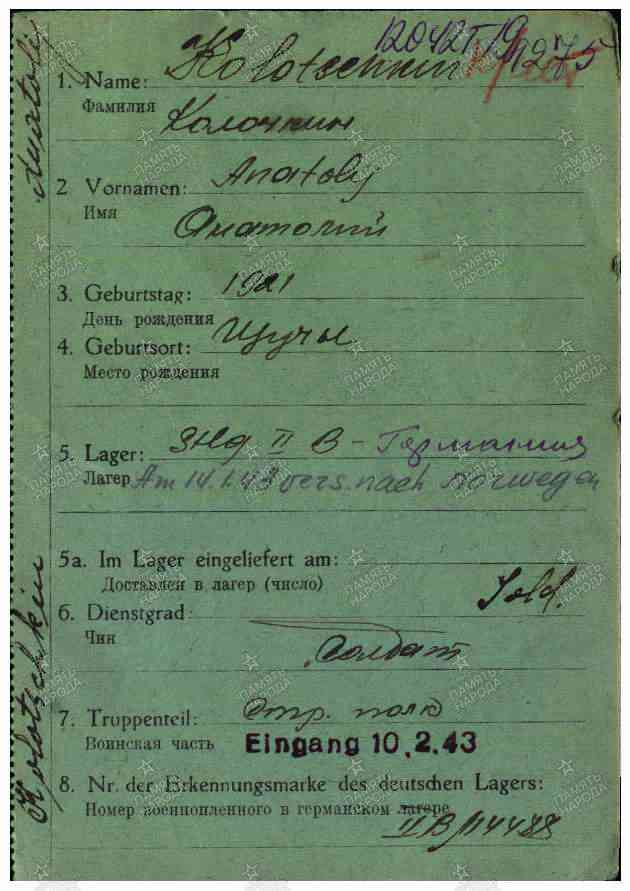 Anatolij
Kolotschkin
1. Name: Kolotschkin
Фамилия
Колочкин
2 Vornamen: Anatoly
Имя
Анатолий
3. Geburtstag: 1921
День рождения
4. Geburtsort:
Место рождения
5. Lager: II B - Германия
Лагер Am 14.1.43 vers. nach Norwegen
5a. Im Lager eingeliefert am:
Доставлен в лагер (число)
6. Dienstgrad: Sold.
Чин
Солдат
7. Truppenteil: Стр. полк
Воинская часть
Eingang 10.2.43
8. Nr. der Erkennungsmarke des deutschen Lagers:
Номер военнопленного в германском лагере
II B 114488
ПАМЯТЬ
НАРОДА